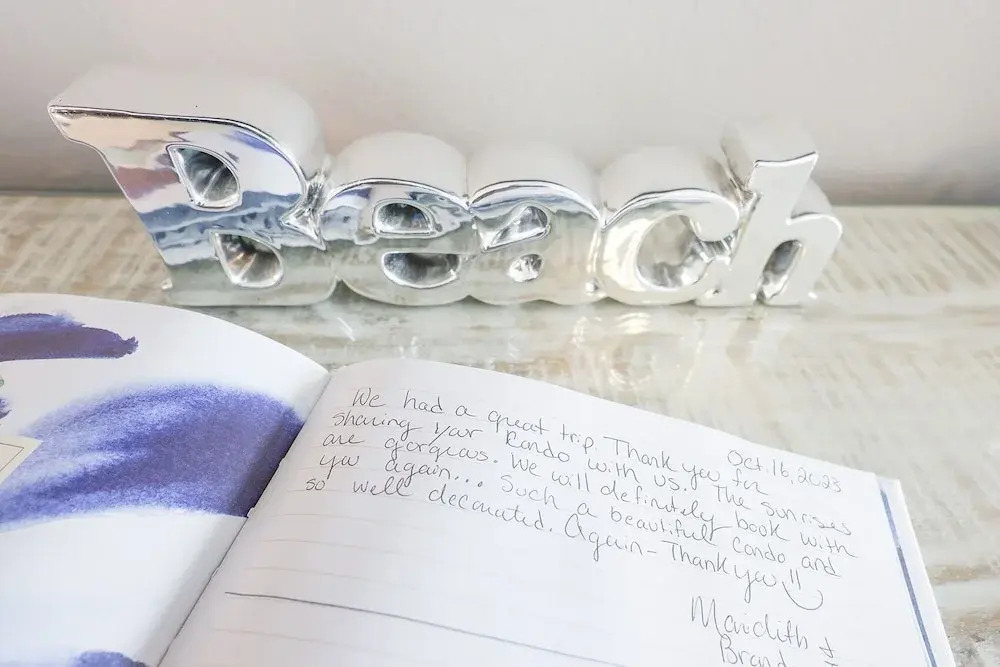 Beach
Oct. 16, 2023
We had a great trip. Thank you for
sharing your Kondo with us. The sunrises
are gorgeous. We will definitely book with
you again... Such a beautiful condo and
so well decorated. Again - Thank you!!
Maridith &
Brand